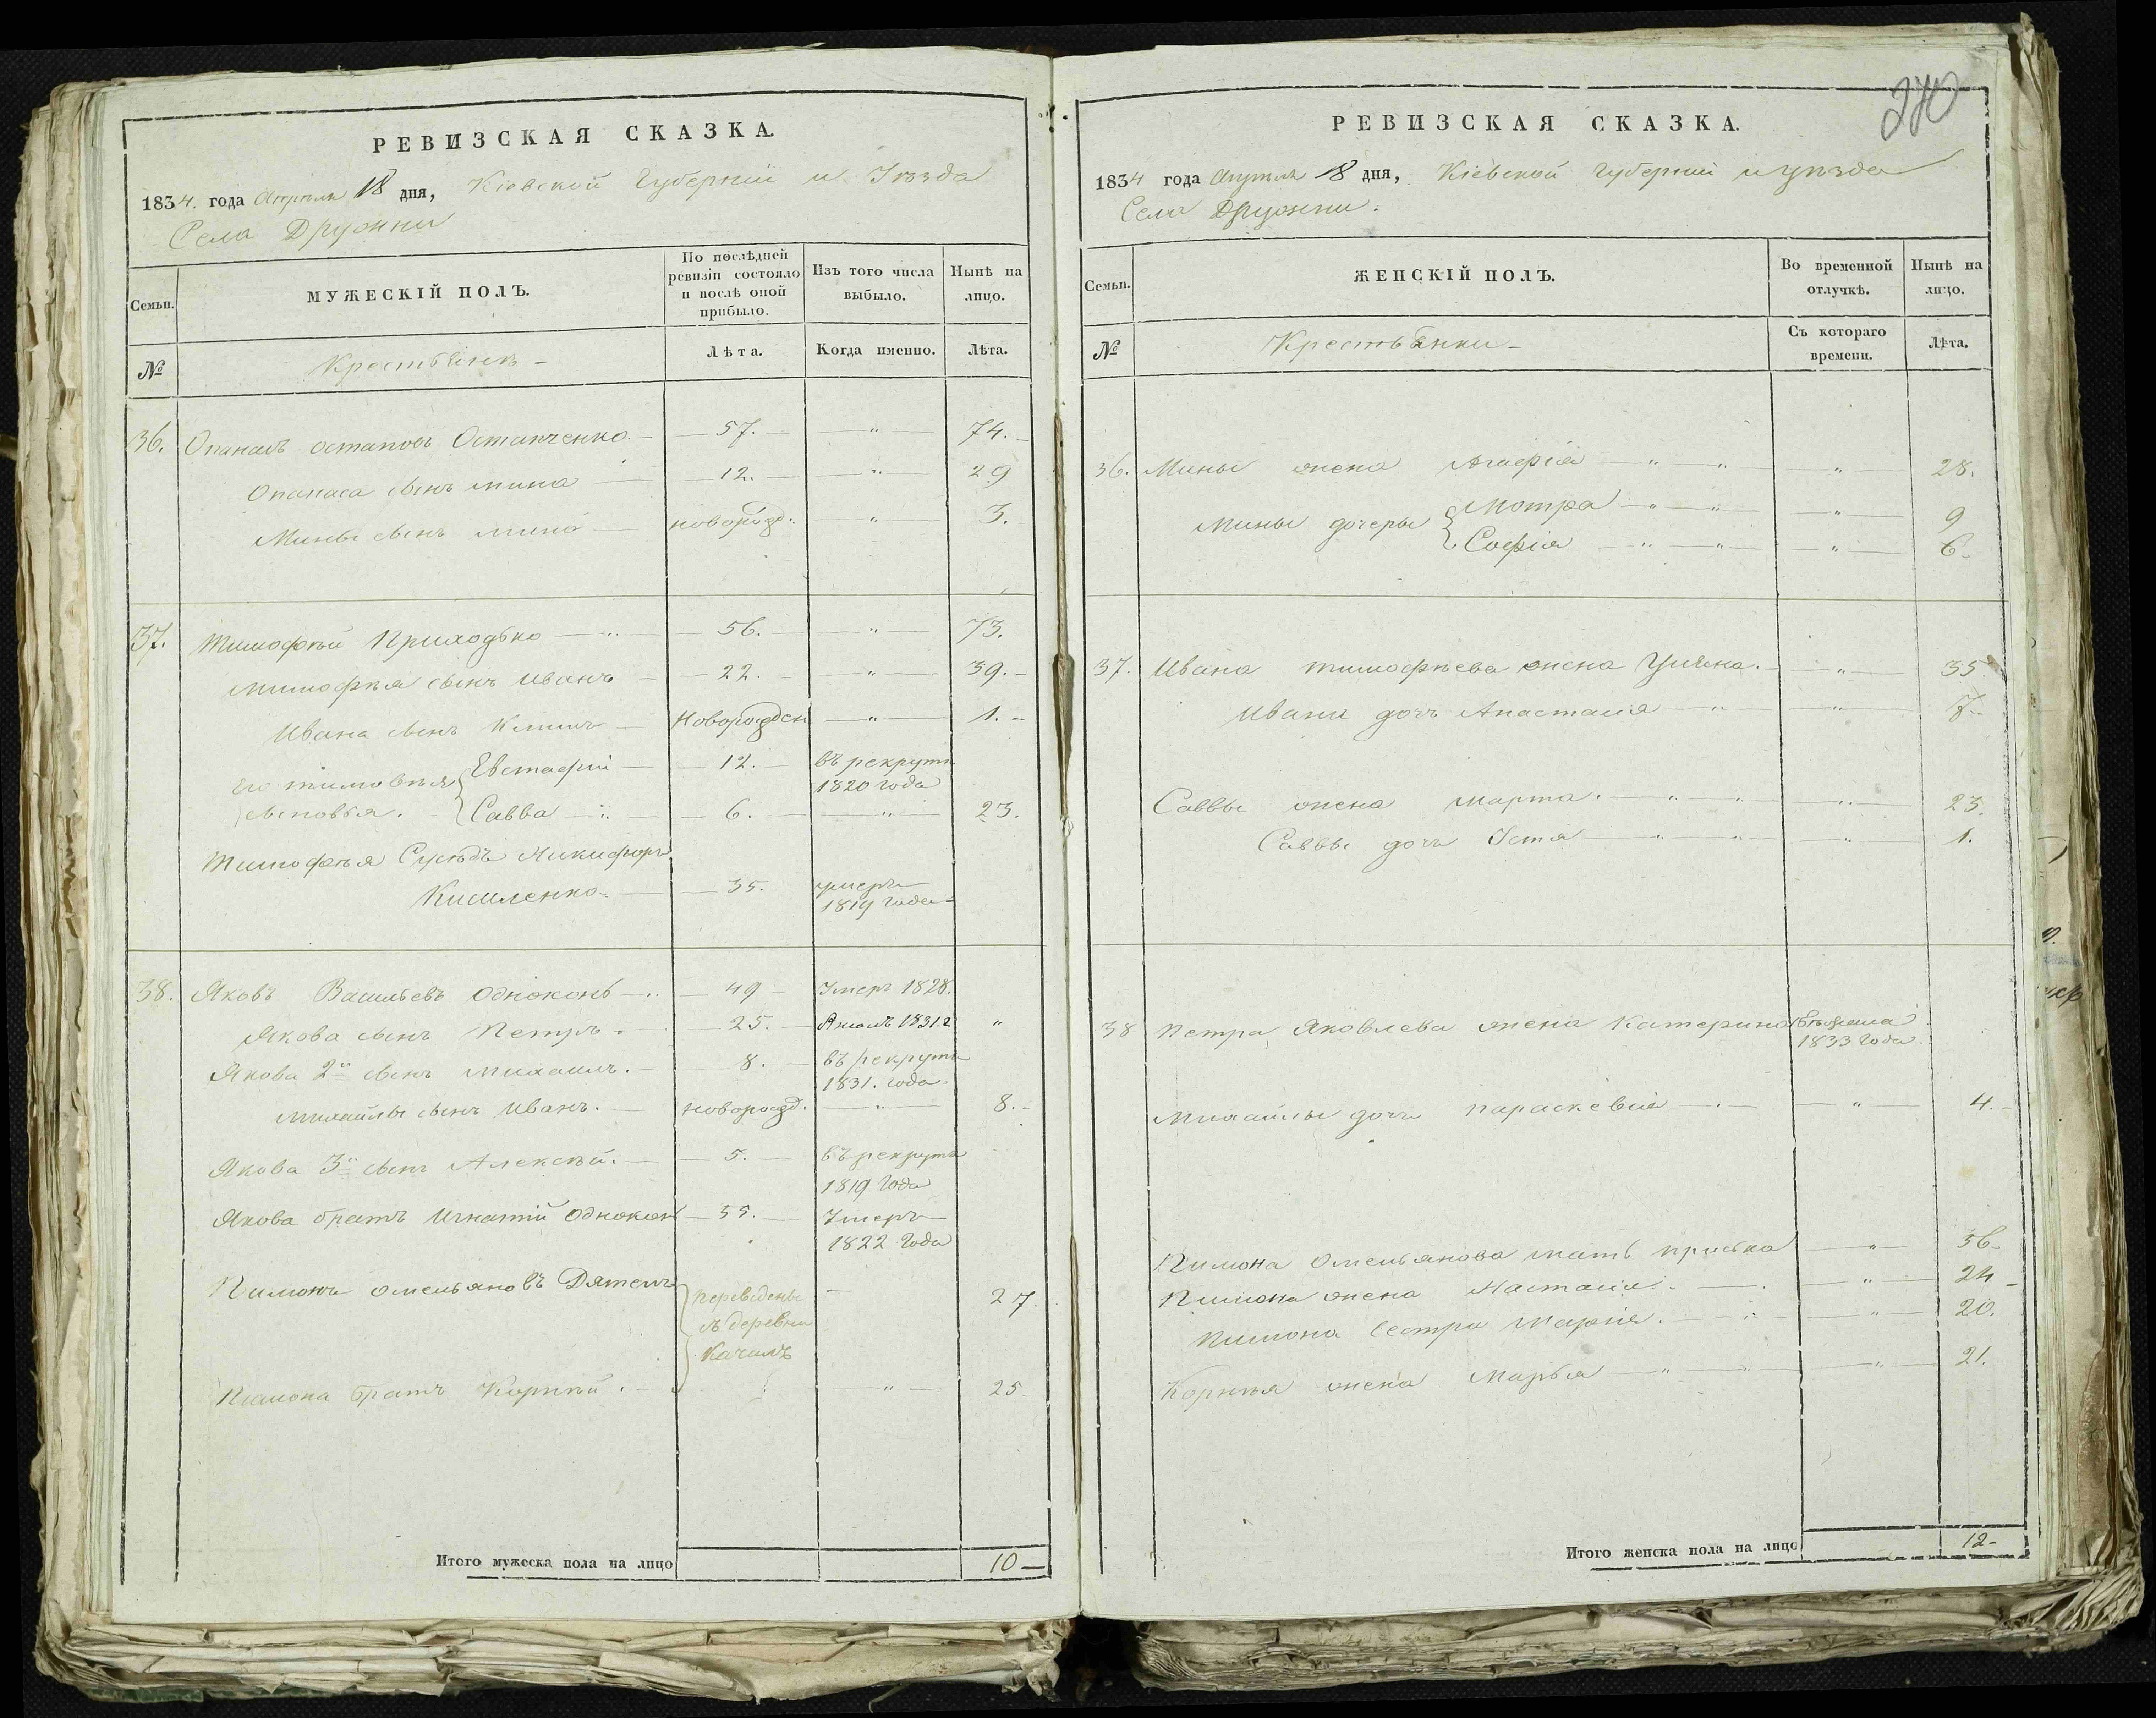 РЕВИЗСКАЯ СКАЗКА.
1834. года Апрѣля 18 дня, Кіевской Губерніи и Уѣзда
Села Дружни
Семьи. МУЖЕСКІЙ ПОЛЪ. По послѣдней ревизіи состояло и послѣ оной прибыло. Изъ того числа выбыло. Нынѣ на лицо.
№ Крестьянъ - Лѣта. Когда именно. Лѣта.
36. Опанасъ Остаповъ Остапченко. - 57. - " - 74. -
Опанаса сынъ Мина - 12. - " - 29
Мины сынъ Мина - новорожд. - " - 3. -
37. Тимофѣй Приходько - " - 56. - " - 73.
Тимофѣя сынъ Иванъ - 22. - " - 39. -
Ивана сынъ Климъ - Новорожден - " - 1. -
Его Тимовѣя сыновья. { Евстафій - 12. - въ рекруты 1820 года
Савва - " - 6. - " - 23.
Тимофѣя Сусѣдъ Никифоръ
- 35. умеръ 1819 года -
38. Яковъ Васильевъ Одноконь - " - 49 - Умеръ 1828.
Якова сынъ Петръ. - 25. - 1831. г "
Якова 2й сынъ Михаилъ. - 8. - въ рекруты 1831. года -
Михайлы сынъ Иванъ. - новорожд. - " - 8. -
Якова 3й сынъ Алексѣй. - 5. - въ рекруты 1819 года
Якова братъ Игнатій Одноконь - 55. - Умеръ 1822 года
Пимонъ Омельяновъ Дятелъ } переведены съ деревни - 27.
Пимона братъ Корнѣй. - " - 25 -
Итого мужеска пола на лицо 10 -
270
РЕВИЗСКАЯ СКАЗКА.
1834 года Апрѣля 18 дня, Кіевской губерніи и уѣзда
Села Дружни.
Семьи. ЖЕНСКІЙ ПОЛЪ. Во временной отлучкѣ. Нынѣ на лицо.
№ Крестьянки - Съ котораго времени. Лѣта.
36. Мины жена Агафія - " - " - " - 28.
Мины дочеры { Мотра - " - " - " - 9
Софія - " - " - " - 6 -
37. Ивана Тимофѣева жена Уліяна. - " - 35
Ивана дочь Анастасія - " - " - 7 -
Саввы жена Марта. - " - " - " - 23.
Саввы дочь Устя - " - " - " - 1.
38 Петра Яковлева жена Катерина 1833 года
Михайлы дочь Параскевія - " - " - 4. -
Пимона Омельянова мать Приська - " - 36 -
Пимона жена Настасія. - " - 24 -
Пимона сестра Марія. - " - " - 20.
Корнѣя жена Марья - " - " - " - 21.
Итого женска пола на лицо 12 -